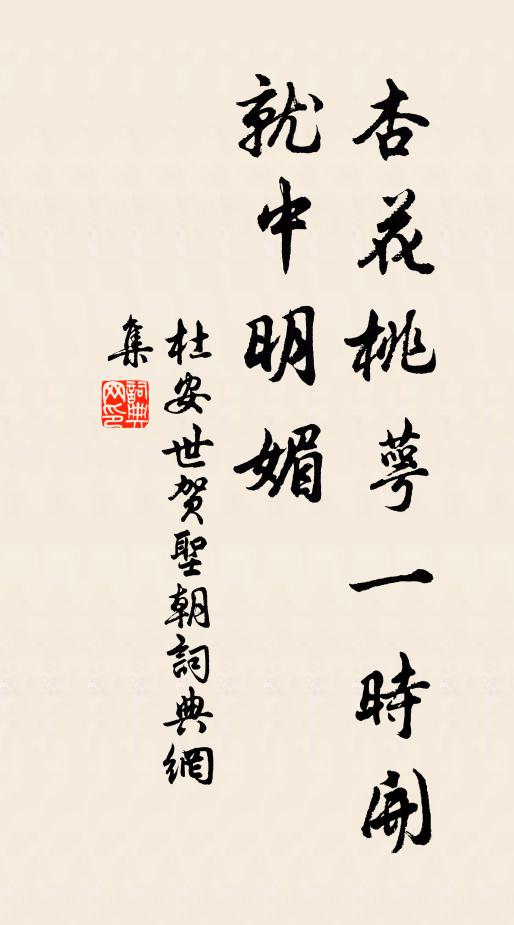 杏花桃萼一時開
就中明媚
杜安世賀聖朝詞典網
集
詞典
网印